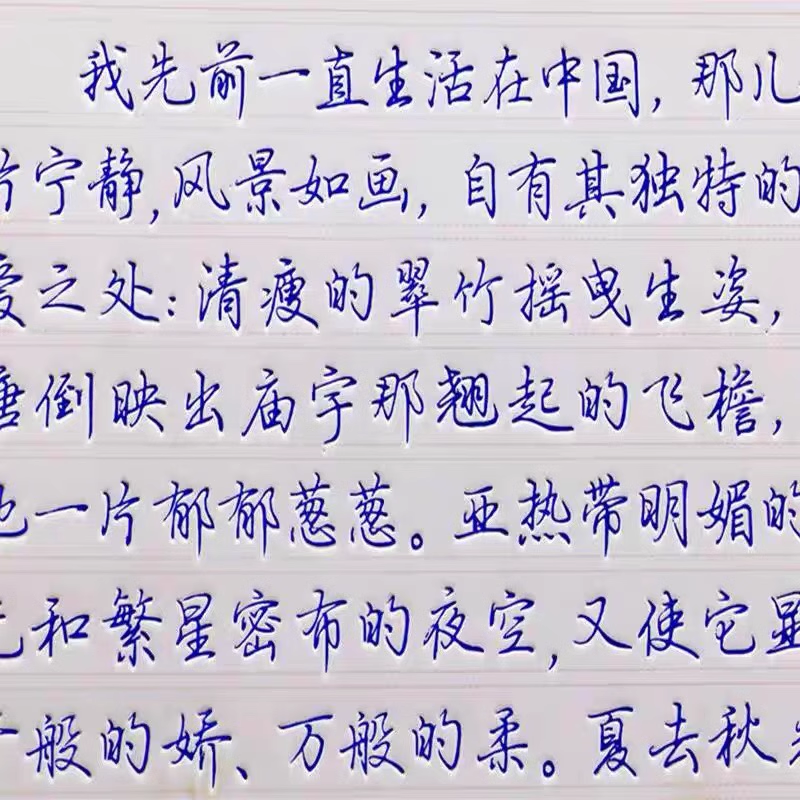 我先前一直生活在中国,那儿
片宁静,风景如画,自有其独特的
爱之处:清瘦的翠竹摇曳生姿,
塘倒映出庙宇那翘起的飞檐,
地一片郁郁葱葱。亚热带明媚的
光和繁星密布的夜空,又使它显
千般的娇、万般的柔。夏去秋来